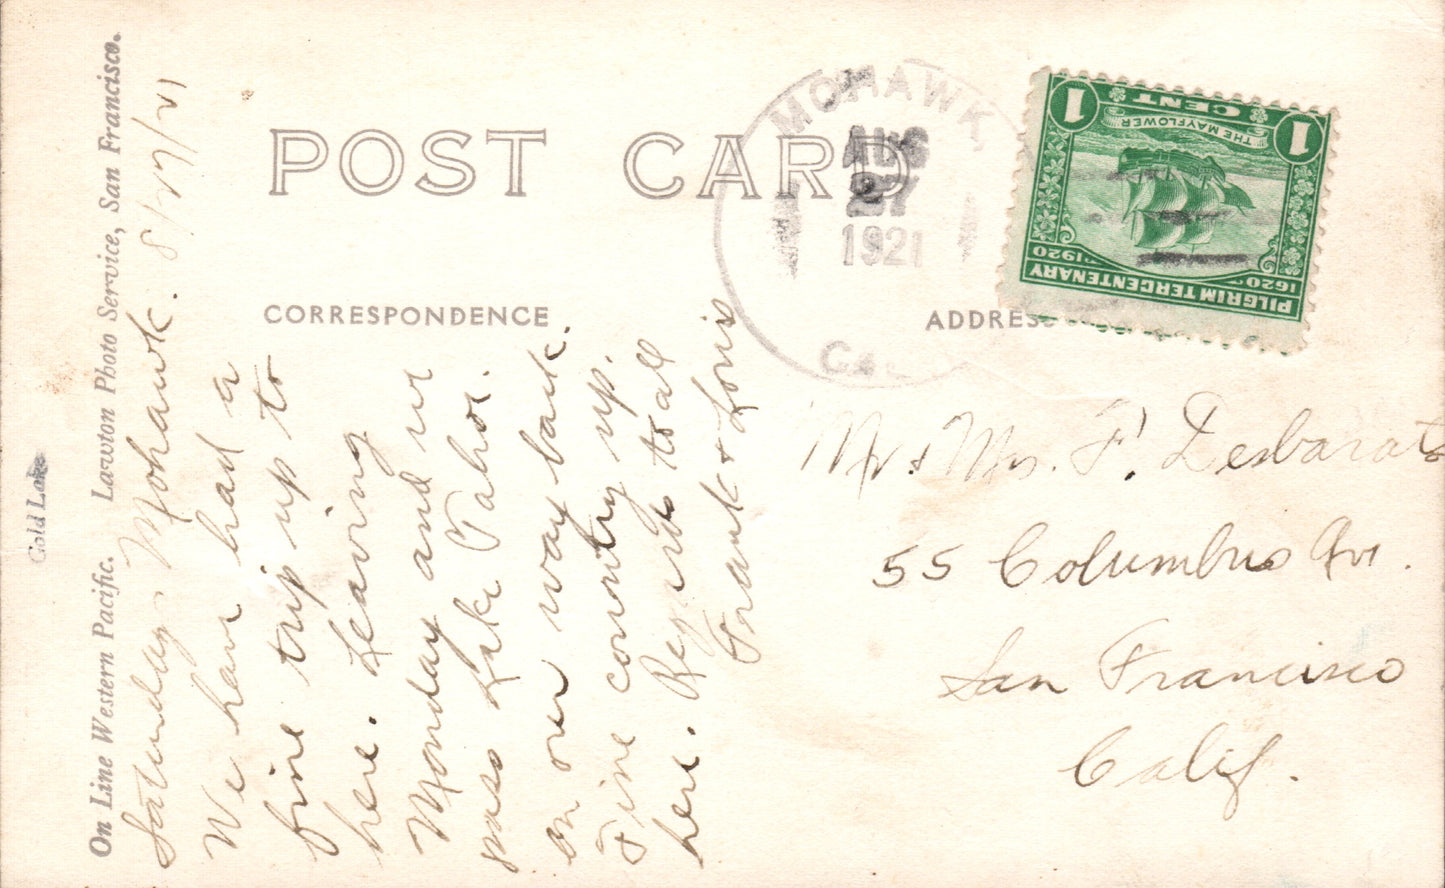 POST CARD
CORRESPONDENCE
ADDRESS
MOHAWK
AUG
27
1921
CAL
1 CENT 1
THE MAYFLOWER
1620 1920
PILGRIM TERCENTENARY
Gold Lake
On Line Western Pacific. Lawton Photo Service, San Francisco.
Saturday - Mohawk. 8/27/21
We have had a
fine trip up to
here. Leaving
Monday and will
pass Lake Tahoe.
on our way back.
Fine country up
here. Regards to all
Frank & Loris
Mr. & Mrs. F. Desbarats
55 Columbus Ave.
San Francisco
Calif.